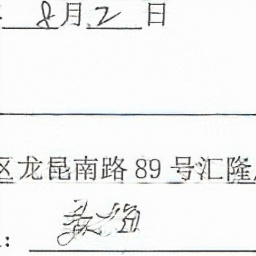 8月2日
区龙昆南路 89 号汇隆
：